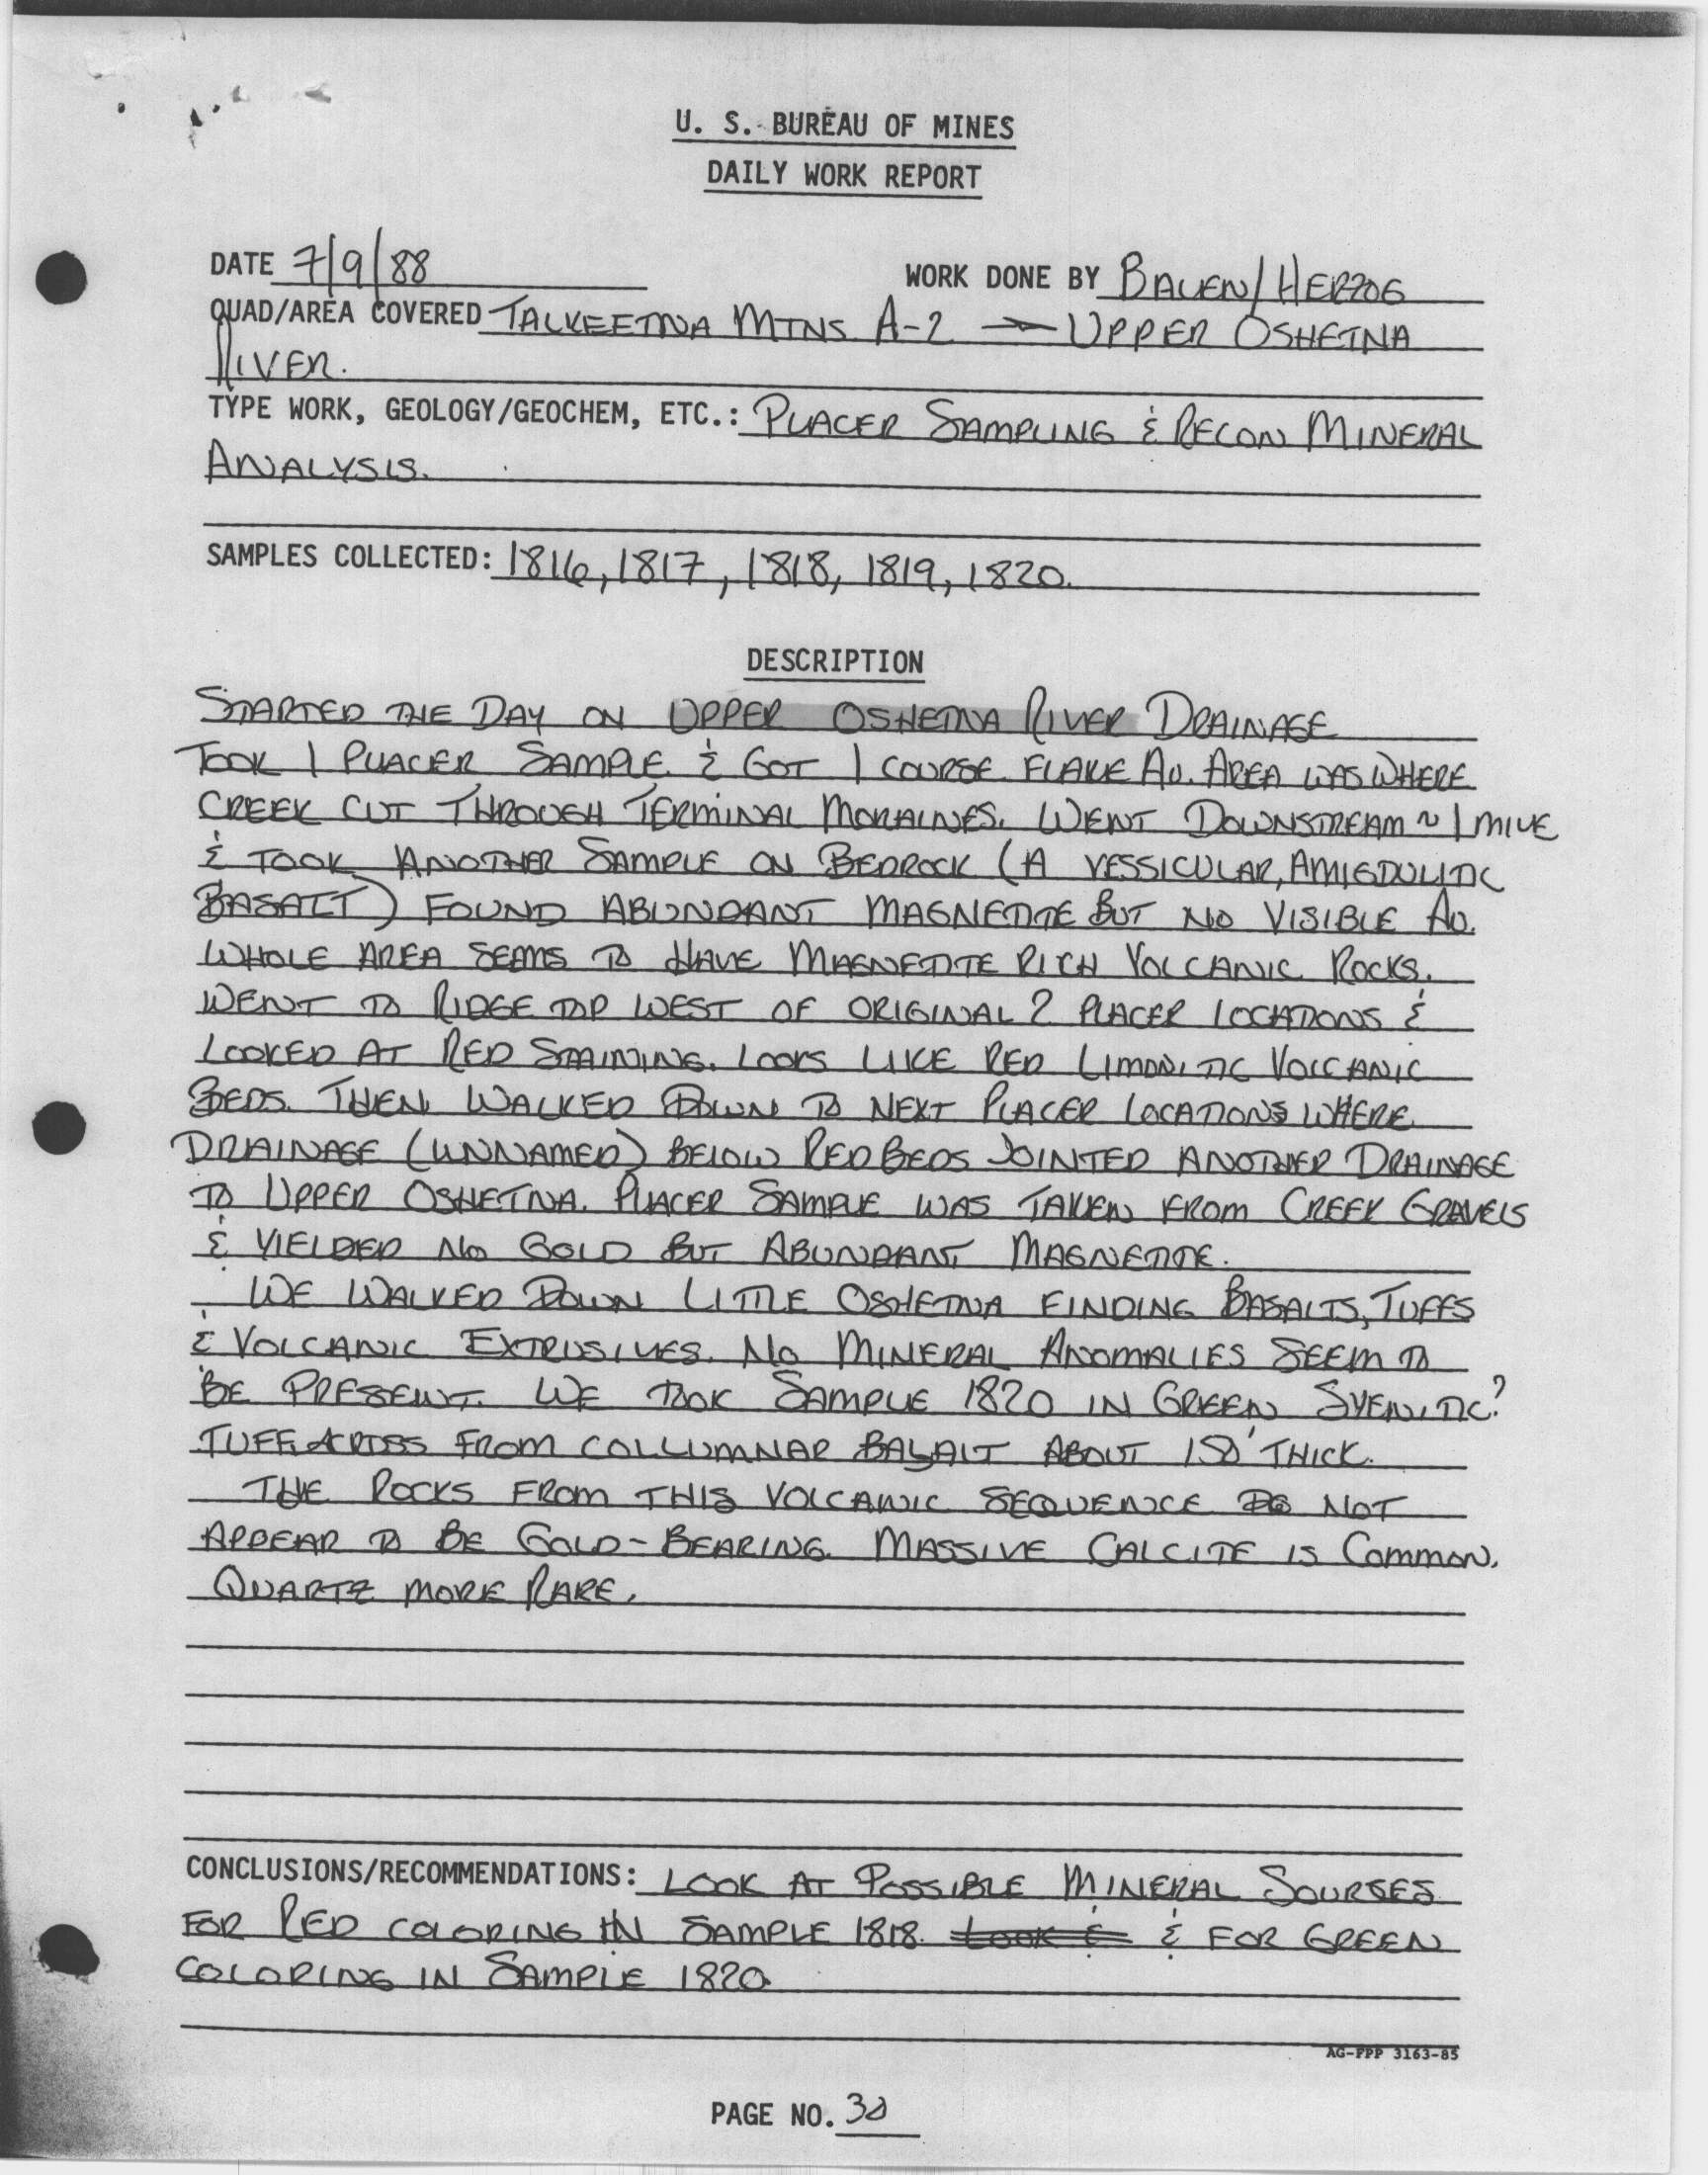 U. S. BUREAU OF MINES
DAILY WORK REPORT
DATE 7/9/88 WORK DONE BY BALEN/HERZOG
QUAD/AREA COVERED TALKEETNA MTNS. A-2 → UPPER OSHETNA
RIVER.
TYPE WORK, GEOLOGY/GEOCHEM, ETC.: PLACER SAMPLING & RECON MINERAL
ANALYSIS.
SAMPLES COLLECTED: 1816, 1817, 1818, 1819, 1820.
DESCRIPTION
STARTED THE DAY ON UPPER OSHETNA RIVER DRAINAGE
TOOK 1 PLACER SAMPLE & GOT 1 COURSE FLAKE AU. AREA WAS WHERE
CREEK CUT THROUGH TERMINAL MORAINES. WENT DOWNSTREAM ~ 1 MILE
& TOOK ANOTHER SAMPLE ON BEDROCK (A VESSICULAR, AMIGDULITIC
BASALT) FOUND ABUNDANT MAGNETITE BUT NO VISIBLE AU.
WHOLE AREA SEEMS TO HAVE MAGNETITE RICH VOLCANIC ROCKS.
WENT TO RIDGE TOP WEST OF ORIGINAL 2 PLACER LOCATIONS &
LOOKED AT RED STAINING. LOOKS LIKE RED LIMONITIC VOLCANIC
BEDS. THEN WALKED DOWN TO NEXT PLACER LOCATIONS WHERE
DRAINAGE (UNNAMED) BELOW RED BEDS JOINTED ANOTHER DRAINAGE
TO UPPER OSHETNA. PLACER SAMPLE WAS TAKEN FROM CREEK GRAVELS
& YIELDED NO GOLD BUT ABUNDANT MAGNETITE.
WE WALKED DOWN LITTLE OSHETNA FINDING BASALTS, TUFFS
& VOLCANIC EXTRUSIVES. NO MINERAL ANOMALIES SEEM TO
BE PRESENT. WE TOOK SAMPLE 1820 IN GREEN SYENITIC?
TUFF ACROSS FROM COLLUMNAR BASALT ABOUT 150' THICK.
THE ROCKS FROM THIS VOLCANIC SEQUENCE DO NOT
APPEAR TO BE GOLD-BEARING. MASSIVE CALCITE IS COMMON.
QUARTZ MORE RARE.
CONCLUSIONS/RECOMMENDATIONS: LOOK AT POSSIBLE MINERAL SOURSES
FOR RED COLORING IN SAMPLE 1818. LOOK & & FOR GREEN
COLORING IN SAMPLE 1820
AG-FPP 3163-85
PAGE NO. 30